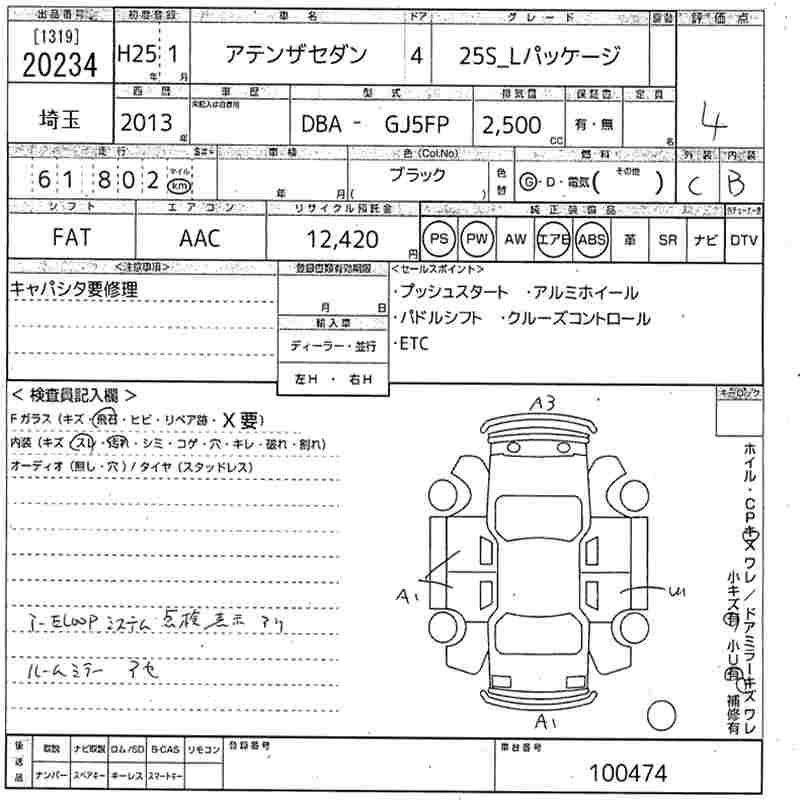 出品番号 初度登録 車名 ドア グレード 評価点
[1319]
20234 H25年 1月 アテンザセダン 4 25S_Lパッケージ
4
西暦 車歴 型式 排気量 保証書 定員
未記入は自家用
埼玉 2013年 DBA - GJ5FP 2,500cc 有・無 名
走行 車検 色(Col.No) 燃料 外装 内装
61802 マイル km 年 月 ブラック ( ) 色替 G・D・電気( その他 ) C B
シフト エアコン リサイクル預託金 純正装備品
FAT AAC 12,420円 PS PW AW エアB ABS 革 SR ナビ DTV
<注意事項> 登録書類有効期限 <セールスポイント>
キャパシタ要修理
月 日
輸入車
ディーラー・並行
左H ・ 右H
・プッシュスタート ・アルミホイール
・パドルシフト ・クルーズコントロール
・ETC
< 検査員記入欄 >
Fガラス (キズ・飛石・ヒビ・リペア跡・X要)
内装 (キズ・スレ・汚れ・シミ・コゲ・穴・キレ・破れ・割れ)
オーディオ (無し・穴) / タイヤ (スタッドレス)
キーロック
A3
A1
U1
A1
ELOOPシステム点検表示アリ
ルームミラー アセ
ホイル・CPキズワレ/ドアミラーキズワレ
小キズ有/小U有 補修有
後送品 取説 ナビ取説 ロム/SD B-CAS リモコン 登録番号 車台番号
ナンバー スペアキー キーレス スマートキー
100474